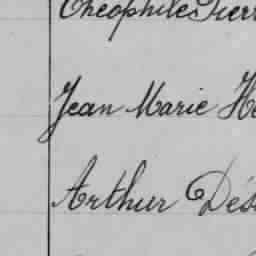 Théophile Pierr
Jean Marie He
Arthur Dés